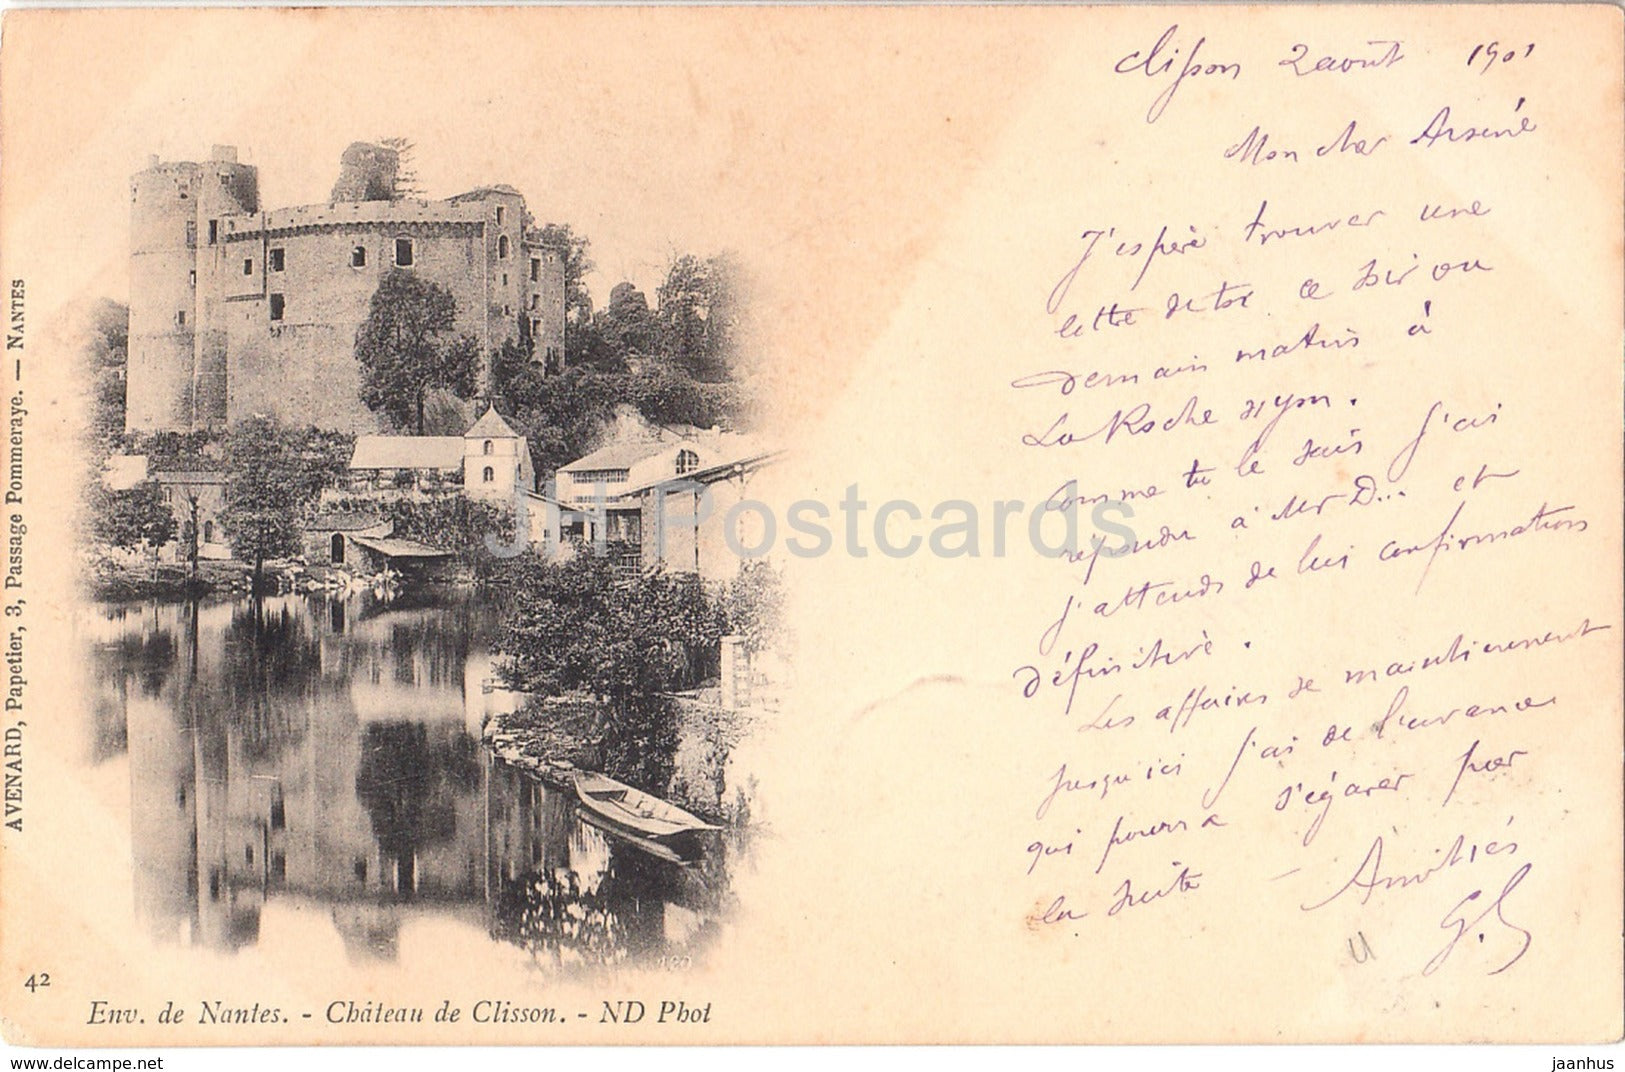 Clisson 2 août 1901
Mon cher Arsène
J'espère trouver une
lettre de toi ce soir ou
demain matin à
La Roche s/yon.
Comme tu le sais j'ai
répondu à Mr D... et
j'attends de lui confirmation
définitive.
Les affaires se maintiennent
jusqu'ici j'ai de l'avance
qui pourra s'égarer par
la suite - Amitiés
G.L
AVENARD, Papetier, 3, Passage Pommeraye. — NANTES
42
Env. de Nantes. - Château de Clisson. - ND Phot
JH Postcards
www.delcampe.net
jaanhus